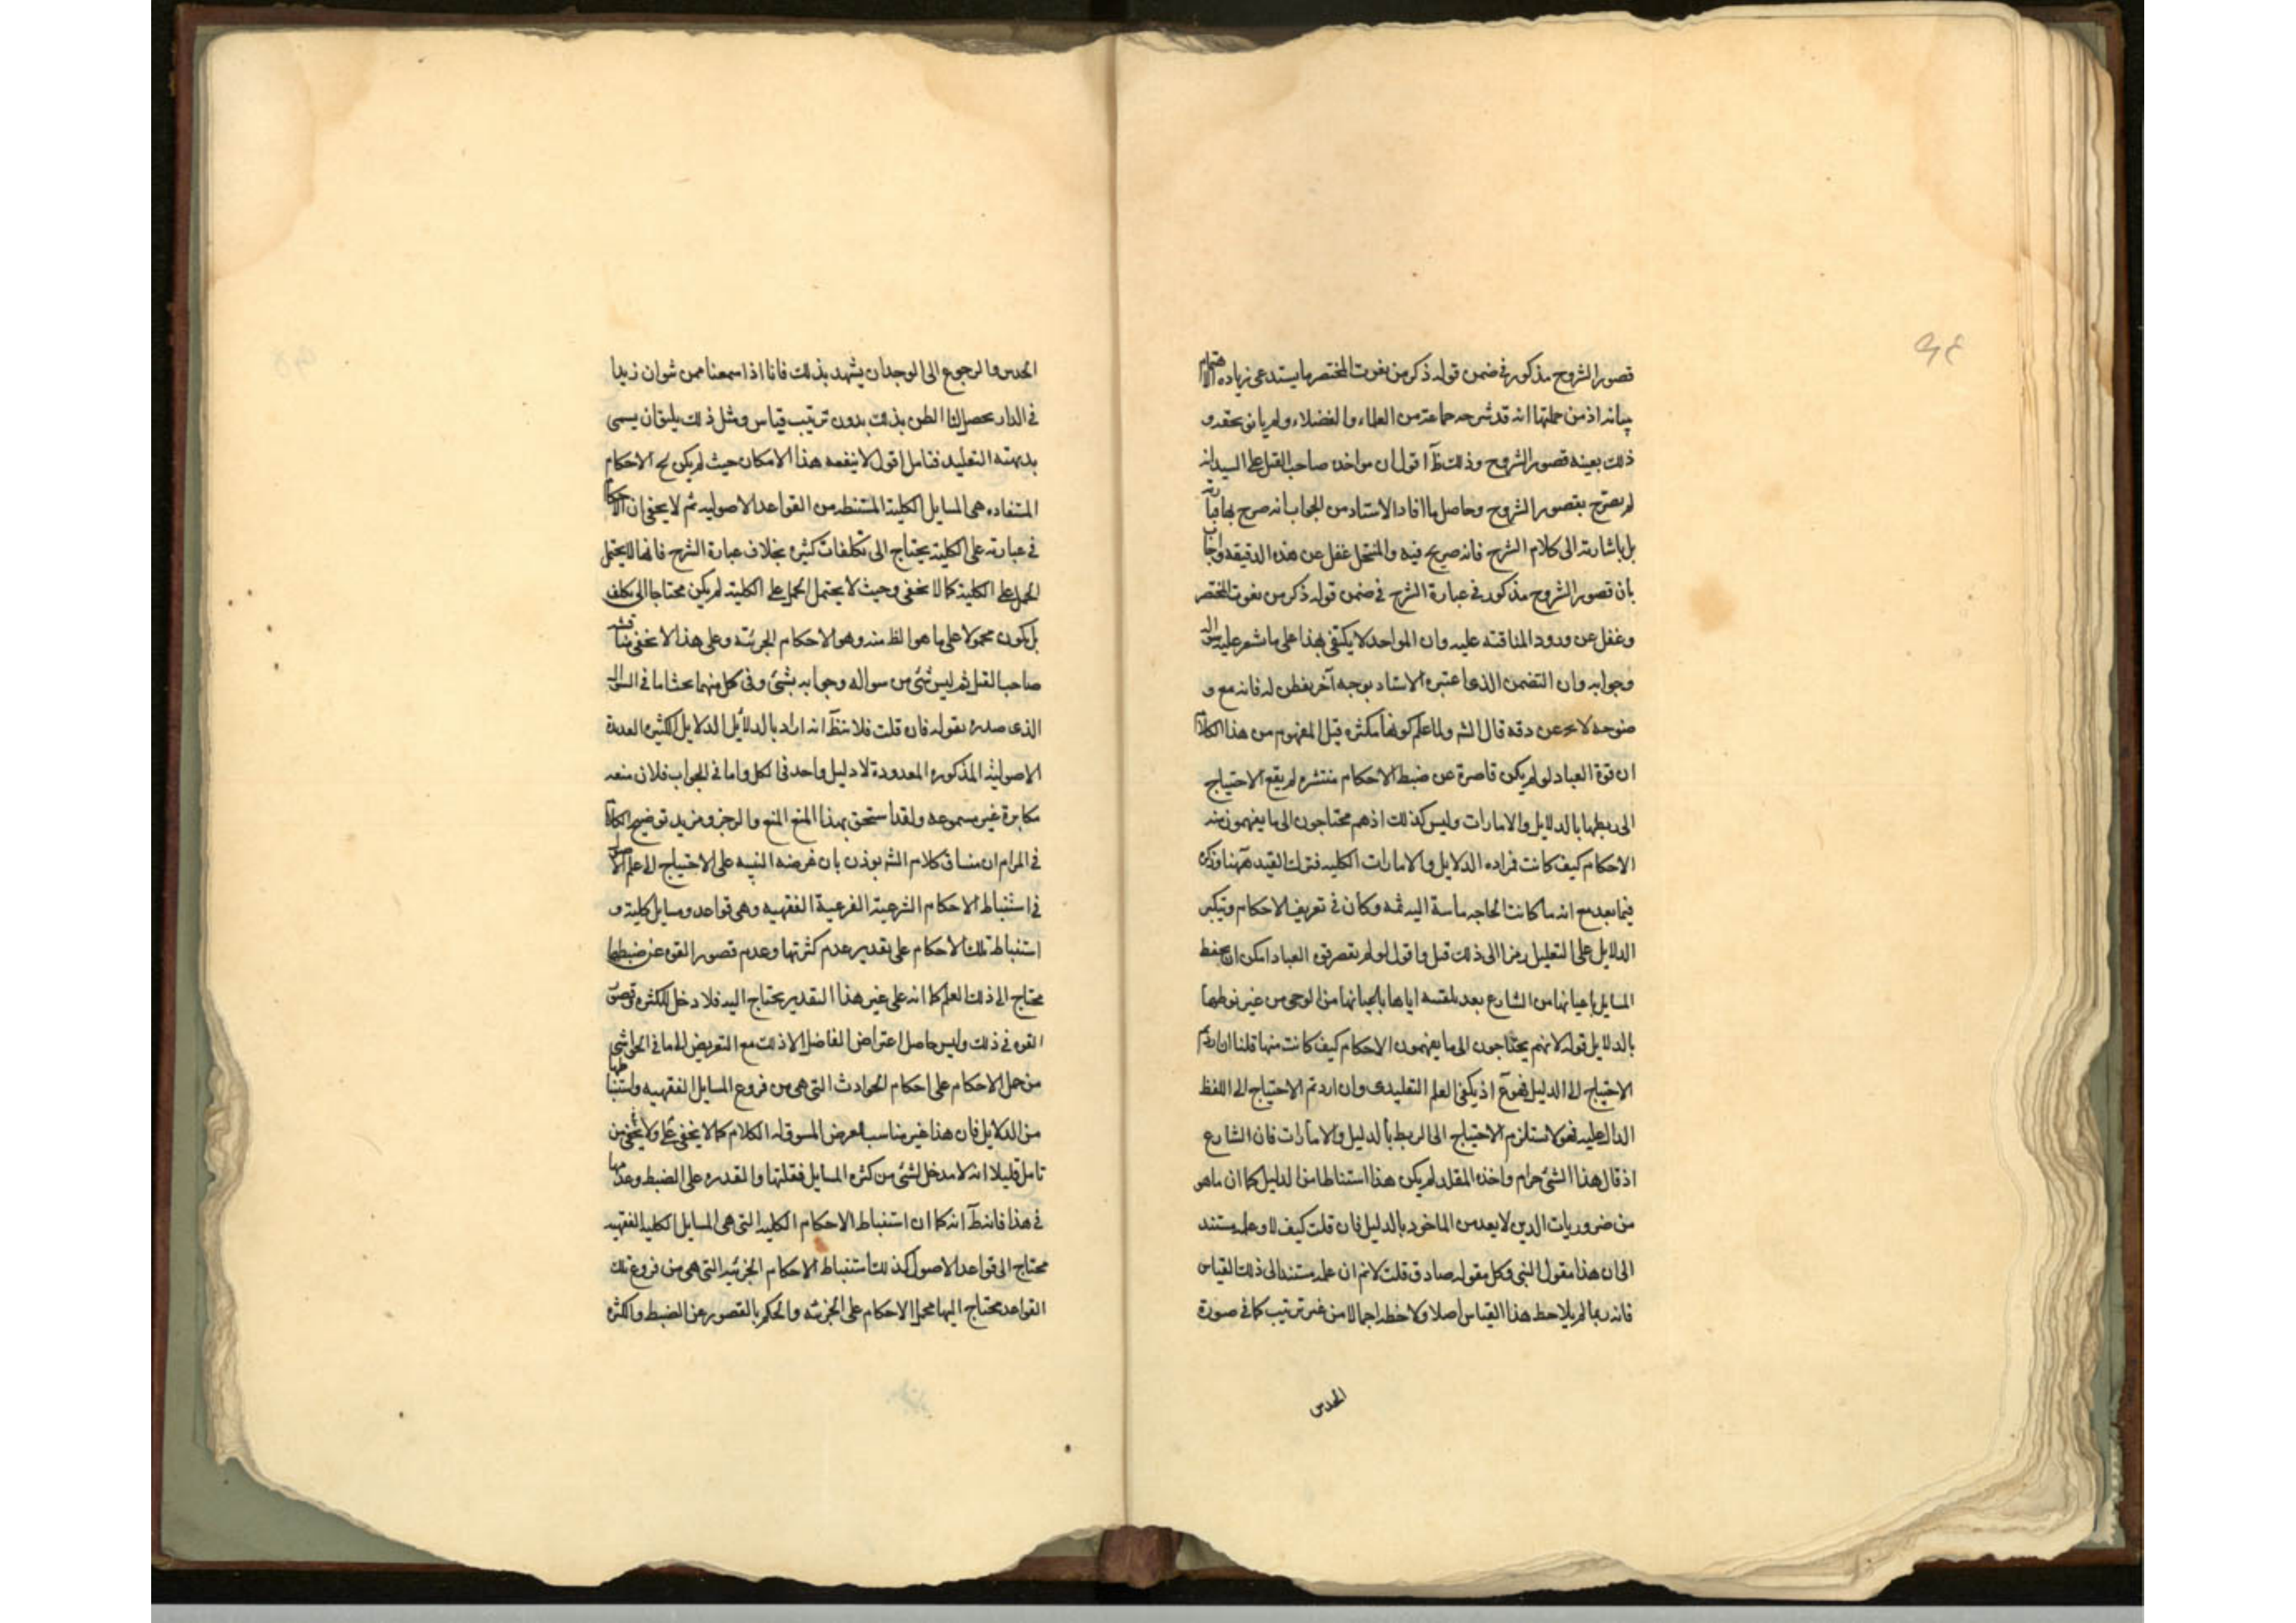 قصور الشروح مذكور في ضمن قوله ذكر من نعوت المختصر ما يستدعي زياده الاهتمام
بيانه اذ من جملتها انه قد شرحه جماعة من العلماء والفضلاء ولم يأتو بحقه و
ذلك بعينه قصور الشروح وذلك ظ اقول ان مواخذه صاحب القيل على السيد انه
لم يصرح بقصور الشروح وحاصل ما افاد الاستاد من الجواب انه صرح بها
بل باشارته الى كلام الشرح فانه صريح فيه والمنتحل غفل عن هذه الدقيقه واجاب
بان قصور الشروح مذكور في عبارة الشرح في ضمن قوله ذكر من نعوت المختصر
وغفل عن ورود المناقشه عليه وان المواخد لا يكتفي بهذا على ما شعر عليه سواله
وجوابه وان التضمن الذي اعتبره الاستاد بوجه آخر يفطن له فانه مع و
ضوحه لا يخ عن دقه قال الشه ولما علم كونها مكثره قيل المفهوم من هذا الكلام
ان قوة العباد لو لم يكن قاصرة عن ضبط الاحكام منتشره لم يقع الاحتياج
الى ربطها بالدلايل والامارات وليس كذلك اذ هم محتاجون الى ما يفهمون منه
الاحكام كيف كانت فراده الدلايل والامارات الكليه فترك القيد ههنا وذكره
فيما بعد مع انه ما كانت الحاجه ماسة اليه ثمه وكان في تعريف الاحكام وتنكير
الدلايل على التعليل رمزا الى ذلك قيل واقول لو لم يقصر قوه العباد امكن ان يحفظ
المسايل باعيانها من الشارع بعد تلقيه اياها باعيانها من الوحي من غير نوطها
بالدلايل قوله لانهم يحتاجون الى ما يفهمون الاحكام كيف كانت منها قلنا ان اردتم
الاحتياج الى الدليل فهو ع اذ يكفي العلم التقليدي وان اردتم الاحتياج الى اللفظ
الدال عليه فهو لا يستلزم الاحتياج الى الربط بالدليل والامارات فان الشارع
اذ قال هذا الشئ حرام واخذه المقلد لم يكن هذا استنباطا من الدليل كما ان ما هو
من ضروريات الدين لا يعد من الماخوذ بالدليل فان قلت كيف لا وعلمه مستند
الى ان هذا مقول النبي وكل مقوله صادق قلت لا نم ان علمه مستند الى ذلك القياس
فانه ربما لم يلاحظ هذا القياس اصلا ولا خطه اجمالا من غير ترتيب كما في صورة
الحدس
الحدس والرجوع الى الوجدان يشهد بذلك فانا اذا سمعنا ممن شو ان زيدا
في الدار يحصل لنا الظن بذلك بدون ترتيب قياس ومثل ذلك يليق ان يسمى
بديهته التقليد فتامل اقول لا ينفعه هذا الامكان حيث لم يكن ح الاحكام
المستفاده هى المسايل الكلية المستنبطه من القواعد الاصوليه ثم لا يخفى ان الاحكام
في عبارته على الكلية يحتاج الى تكلفات كثيره بخلاف عبارة الشرح فانها لا يحتمل
الحمل على الكلية كما لا يخفى وحيث لا يحتمل الحمل على الكلية لم يكن محتاجا الى تكلف
بل يكون محمولا على ما هو الظ منه وهو الاحكام الجزئيه وعلى هذا لا يخفى مناقشه
صاحب القيل ثم ليس شئ من سواله وجوابه بشئ وفي كل منهما بحث اما في السؤال
الذى صدره بقوله فان قلت فلانه ظ انه اراد بالدلايل الدلايل الكثيره العديدة
الاصولية المذكورة المعدودة لا دليل واحد في الكل واما في الجواب فلان منعه
مكابرة غير مسموعه ولقد استحق بهذا المنع المنع والزجر ومزيد توضيح الكلام
في المرام ان مساق كلام الشه يوذن بان غرضه التنبيه على الاحتياج الى علم الاصول
في استنباط الاحكام الشرعية الفرعية الفقهيه وهى قواعد ومسايل كلية و
استنباط تلك الاحكام على تقدير عدم كثرتها وعدم قصور القوه عن ضبطها
محتاج الى ذلك العلم كما انه على غير هذا التقدير يحتاج اليه فلا دخل للكثره وقصور
القوه في ذلك وليس حاصل اعتراض الفاضل الا ذلك مع التعريض لما في الحواشي
من حمل الاحكام على احكام الحوادث التى هى من فروع المسايل الفقهيه واستنباطها
من الدلايل فان هذا غير مناسب لغرض المسوق له الكلام كما لا يخفى على ولا يخفى من
تامل قليلا انه لا مدخل لشئ من كثره المسايل فقلتها والقدره على الضبط وعدمها
في هذا فانه ظ انه كما ان استنباط الاحكام الكليه التى هى المسايل الكليه الفقهيه
محتاج الى قواعد الاصول كذلك استنباط الاحكام الجزئيه التى هى من فروع تلك
القواعد محتاج اليها محمل الاحكام على الجزئيه والحكم بالقصور عن الضبط والكثره